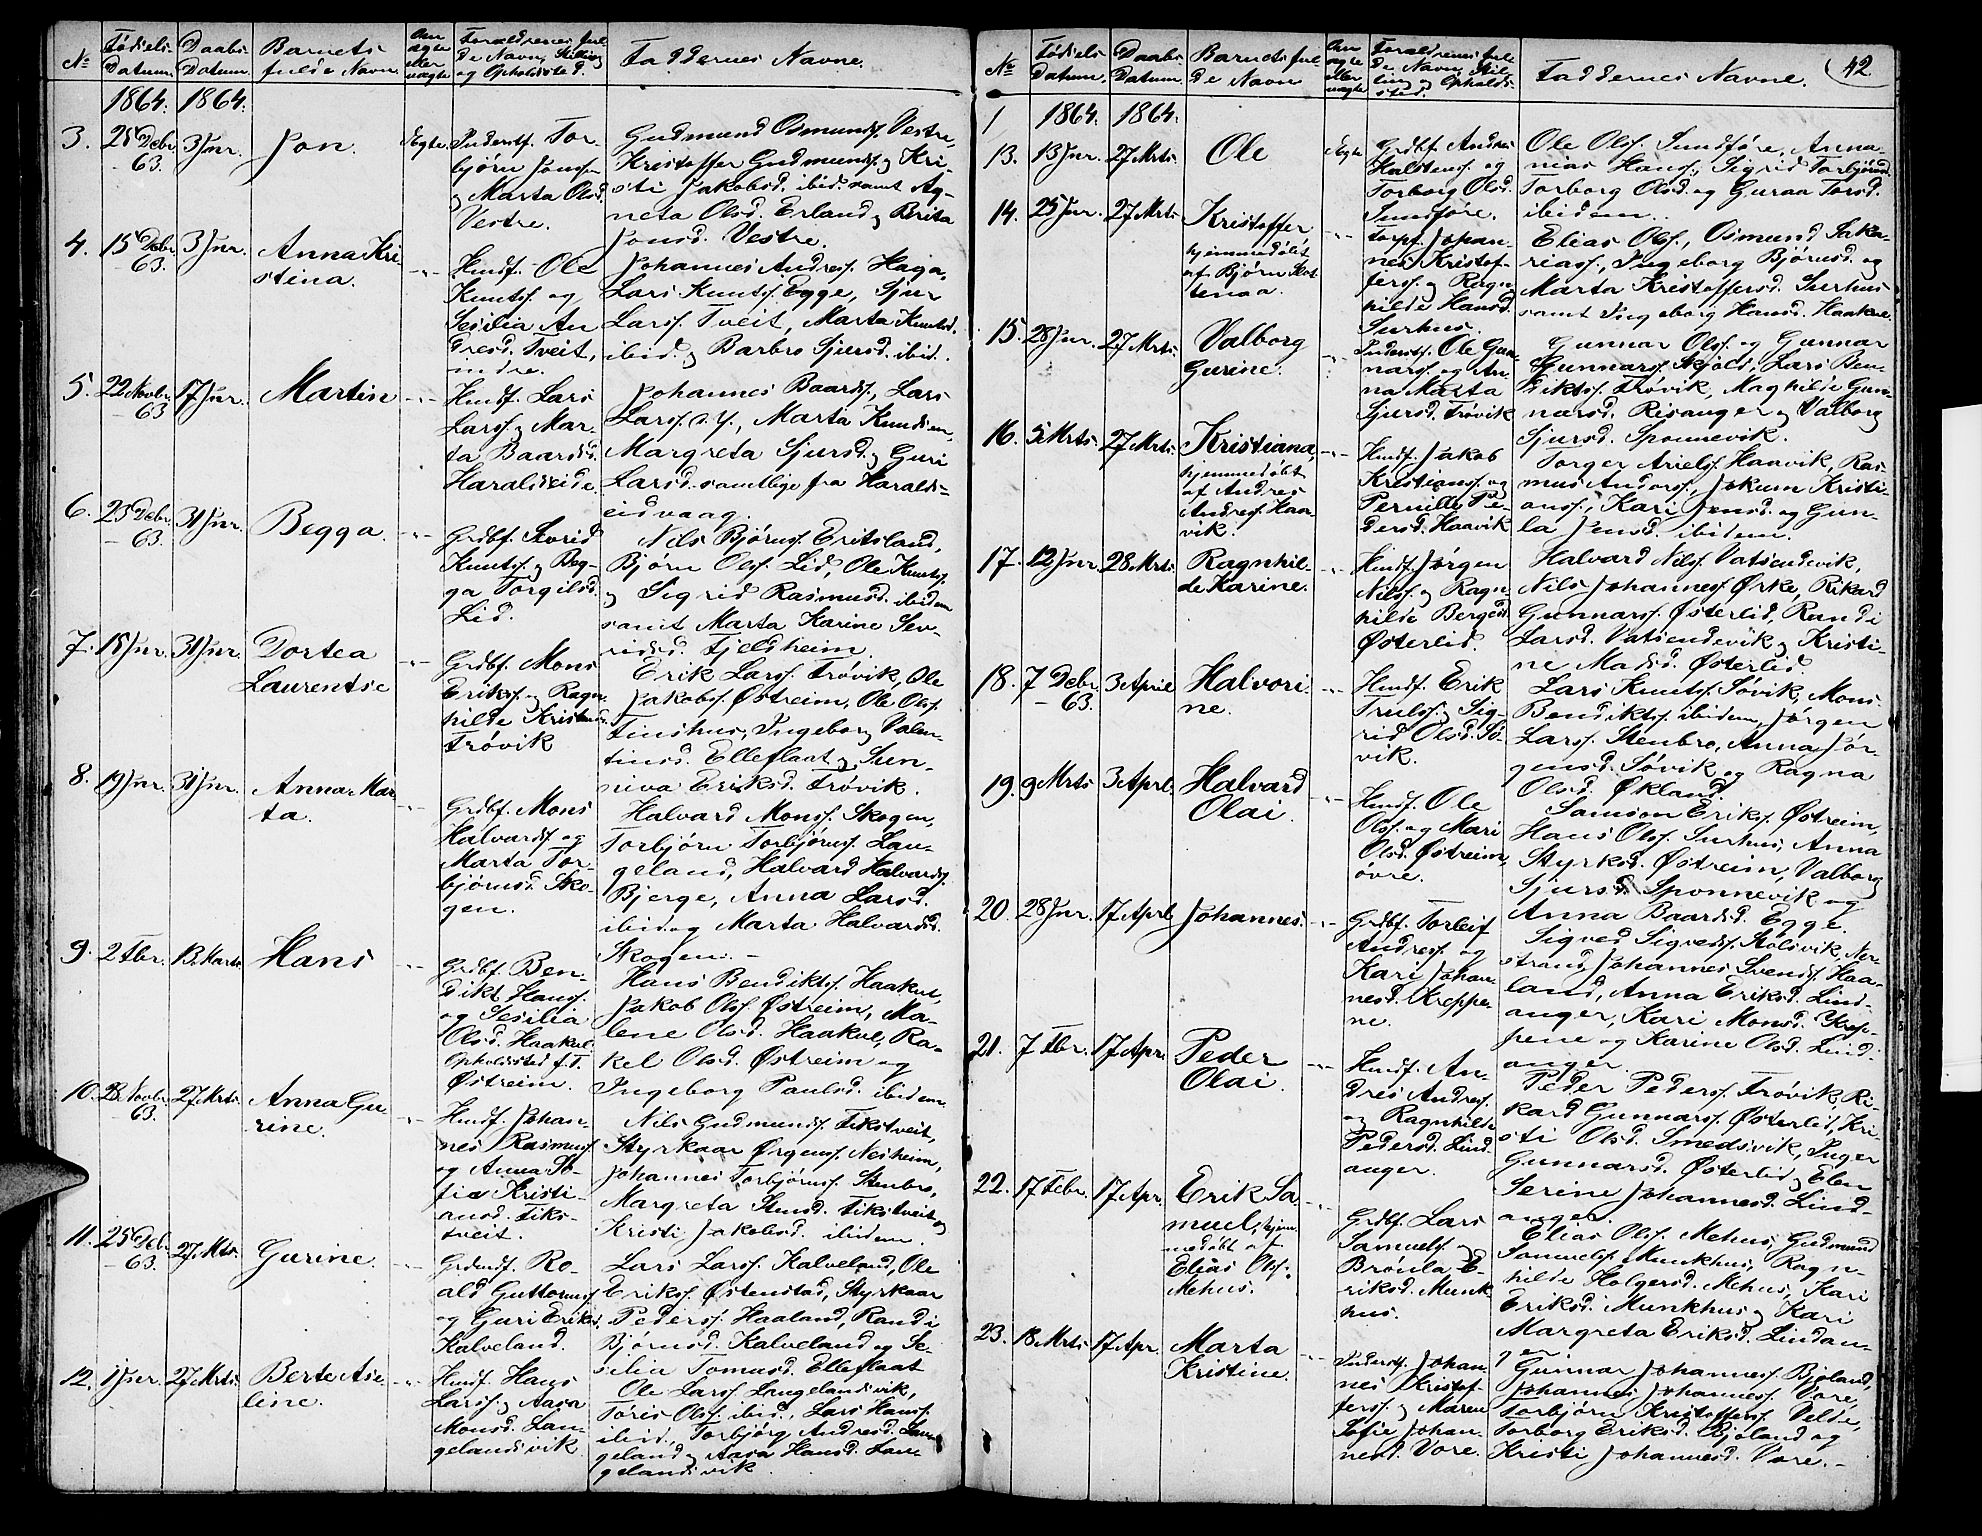 № | Fødsels Datum. | Daabs Datum. | Barnets fulde Navn. | Om ægte eller uægte | Forældrenes fulde Navn, Stilling og Opholdssted. | Faddernes Navne.
1864. 1864.
3. | 28 Debr 63. | 3 Jnr. | Jon. | Ægte.
Inderstf. Tor-
bjørn Jonss.
og Marta Olsd.
Vestre.
Gudmund Osmunds. Vestre,
Kristoffer Gudmunds. og Kri-
sti Jakobsd. ibid. samt Ag-
neta Olsd. Erland og Brita
Jonsd. Vestre.
4. | 15 Debr 63. | 3 Jnr. | Anna Kri-
stina.
Husmf. Ole
Knuts. og
Sesilia An
dresd. Tveit,
indre.
Johannes Andres. Haga,
Lars Knuts. Egge, Sjur
Larss. Tveit, Marta Knutsd.
ibid. og Barbro Sjursd. ibid.
5. | 22 Novbr 63. | 17 Jnr. | Martin
Husmf. Lars
Larss. og Mar-
ta Baardsd.
Haraldseide.
Johannes Baards., Lars
Larss. s. y., Marta Knudsen,
Margreta Sjursd. og Guri
Larsd. samtlige fra Haralds=
eidvaag.
6. | 23 Debr. 63. | 31 Jnr. | Begga.
Grdbf. Sivrid
Knuts. og Beg-
ga Torgilsd.
Lid.
Nils Bjørns. Eritsland,
Bjørn Ols. Lid, Ole Knuts.
og Sigrid Rasmusd. ibidem
samt Marta Karine Sev-
ridsd. Fjeldheim.
7. | 18 Jnr. | 31 Jnr. | Dortea
Laurentse
Grdbf. Mons
Eriks. og Ragn-
hilde Kristensd.
Trøvik
Erik Larss. Trøvik, Ole
Jakobs. Østreim, Ole Ols.
Tinshus, Ingeborg Valen-
tinsd. Elleflaat og Sun-
niva Eriksd. Trøvik.
8. | 19 Jnr. | 31 Jnr. | Anna Mar
ta.
Grdbf. Mons
Halvards. og
Marta Tor-
bjørnsd. Sko-
gen.
Halvard Monss. Skogen,
Torbjørn Torbjørns. Lan-
geland, Halvard Halvards.
Bjerge, Anna Larsd.
ibid. og Marta Halvardsd.
Skogen. -
9. | 2 Fbr. | 13. Marts. | Hans
Grdbf. Ben-
dikt Hans.
og Sesilia
Olsd. Haakul.
Opholdssted f. T.
Østreim.
Hans Bendikts. Haakul,
Jakob Ols. Østreim, Ma-
lene Olsd. Haakul, Ra-
kel Olsd. Østreim og
Ingeborg Paulsd. ibidem.
10. | 28 Novbr. 63. | 27 Mrts. | Anna Gu
rine.
Husmf. Johan-
nes Rasmuss.
og Anna So-
fia Kristi-
ansd. Fiks-
tveit.
Nils Gudmunds. Fikstveit,
Styrkaar Ørgens. Nesheim,
Johannes Torbjørns. Stenbro,
Margreta Stensd. Fikstveit og
Kristi Jakobsd. ibidem.
11. | 25 Debr 63. | 27 Mts. | Gurine.
Grdmdf. Ro-
ald Guttorms.
og Guri Eriksd.
Kalveland.
Lars Larss. Kalveland, Ole
Eriks. Østenstad, Styrkaar
Peders. Haaland, Randi
Bjørnsd. Kalveland og Se-
silia Tomasd. Elleflaat
12. | 1 Jnr. | 27 Mrts. | Berte Ase-
line.
Husmf. Hans
Larss. og Aasa
Monsd. Lan-
gelandsvik
Ole Larss. Langelandsvik,
Tøris Ols. ibid., Lars Hans.
ibid., Torbjørg Andresd. Lan-
geland og Aasa Hansd. Lan-
gelandsvik.
42
№ | Fødsels Datum. | Daabs Datum. | Barnets ful de Navn | Om ægte eller uægte | Forældrenes ful de Navn, Stil ling og Opholds- sted. | Faddernes Navne.
1 1864. 1864.
13. | 13 Jnr. | 27 Mrts. | Ole | Ægte
Grdbf. Andres
Halstens. og
Torborg Olsd.
Sundføre.
Ole Ols. Sundføre, Anna-
nias Hans., Sigrid Torbjørnsd.
Torborg Olsd. og Guraa Torsd.
ibidem.
14. | 25 Jnr. | 27 Mrts. | Kristoffer
hjemmedøbt
af Bjørn Slot
tenaa.
Torpf. Johan-
nes Kristof-
fers. og Ragn-
hilde Hansd.
Surhus.
Elias Ols., Osmund Saka-
rias., Ingeborg Bjørnsd. og
Marta Kristoffersd. Surhus
samt Ingeborg Hansd. Haakul.
15. | 28 Jnr. | 27 Mrts. | Valborg
Gurine.
Inderstf. Ole Gun-
nars. og An-
na Marta
Sjursd. Trøvik
Gunnar Ols. og Gunnar
Gunnars. Skjold, Lars Ben-
dikts. Trøvik, Maghilde Gun-
narsd. Risanger og Valborg
Sjursd. Sponnevik.
16. | 5 Mrts. | 27 Mrts. | Kristiana,
hjemmedøbt
af Andres
Andres. Haa-
vik.
Husmf. Jakob
Kristians. og
Pernille Pe-
dersd. Haavik
Torger Ariels. Haavik, Ras-
mus Anders., Jokum Kristi-
ans., Kari Jensd. og Gun-
la Jensd. ibidem.
17. | 12 Jnr. | 28 Mrts. | Ragnhil-
de Karine.
Husmf. Jørgen
Nilss. og Ragn-
hilde Bergesd.
Østerlid.
Halvard Nils. Vatsendevik,
Nils Johannes. Ørke, Rikard
Gunnars. Østerlid, Randi
Larsd. Vatsendevik og Kristi-
ne Madsd. Østerlid.
18. | 7 Debr. 63. | 3 April | Halvori-
ne.
Husmf. Erik
Truls. og Sig-
rid Olsd. Sø-
vik.
Lars Knuts. Søvik, Mons
Bendikts. ibidem, Jørgen
Larss. Stenbro, Anna Jør-
gensd. Søvik og Ragna
Olsd. Økland.
19. | 9 Mrts | 3 Aprl. | Halvard
Olai.
Husmf. Ole
Ols. og Mari
Olsd. Østreim,
øvre.
Samson Eriks. Østreim,
Hans Ols. Surhus, Anna
Styrksd. Østreim, Valborg
Sjursd. Sponnevik og
Anna Baardsd. Egge.
20. | 28 Jnr. | 17 Aprl | Johannes.
Grdbf. Torleif
Andres. og
Kari Johan-
nesd. Kreppe-
ne.
Sigved Sigveds. Stølsvik, Ner-
strand, Johannes Svends. Haa-
land, Anna Eriksd. Lind-
anger, Kari Monsd. Krep-
pene og Karine Olsd. Lind-
anger.
21. | 7 Fbr. | 17 Apr. | Peder
Olai.
Husmf. An-
dres Andres.
og Ragnhilde
Pedersd. Lind-
anger.
Peder Peders. Trøvik, Ri-
kard Gunnars. Østerlid, Kri-
sti Olsd. Smedsvik, Inger
Gunnarsd. Østerlid og Elen
Serine Johannesd. Lind-
anger.
22. | 17 Febr. | 17 Apr. | Erik Sa-
muel, hjem-
medøbt af
Elias Ols.
Mehus.
Grdbf. Lars
Samuels. og
Broula E-
riksd. Munk
hus.
Elias Ols. Mehus, Gudmund
Samuels. Munkhus, Ragn-
hilde Holgersd. Mehus, Kari
Eriksd. Munkhus og Kari
Margreta Eriksd. Lindan-
ger
23. | 18 Mrts | 17 Apr. | Marta
Kristine.
Inderstf. Johan-
nes Kristof-
fers. og Maren
Sofie Johan-
nesd. Vore.
Gunnar Johannes. Bjøland,
Johannes Johannes. Vore,
Torbjørn Kristoffers. Velde,
Torborg Eriksd. Bjøland og
Kristi Johannesd. Vore. -